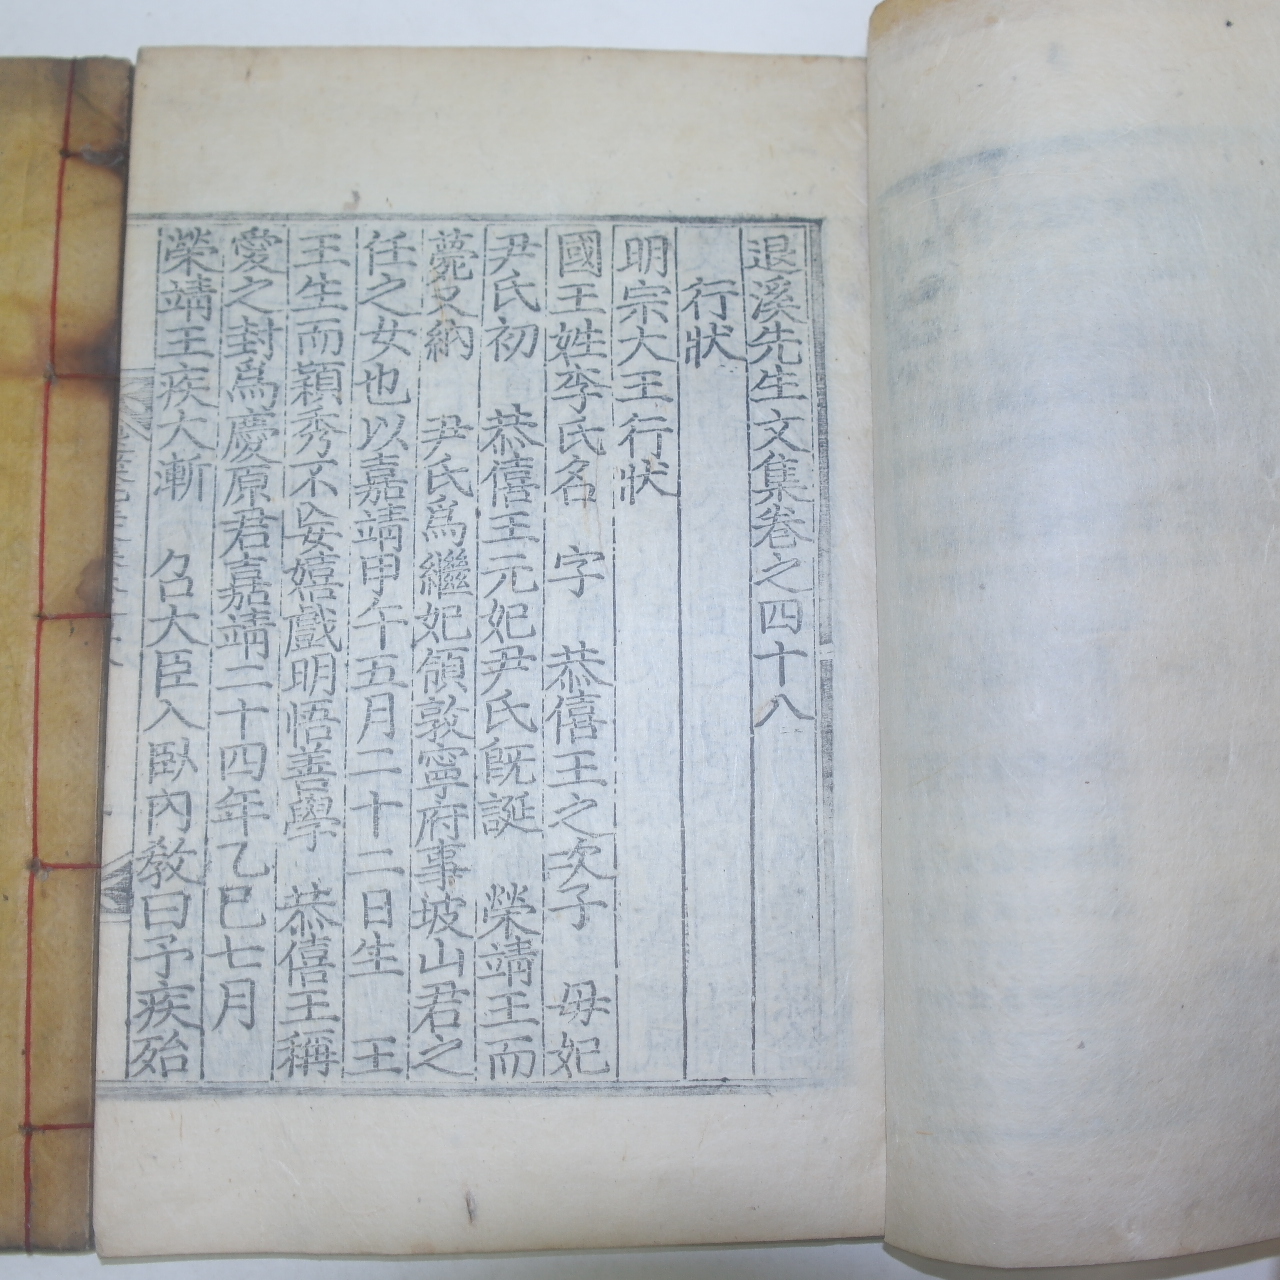 退溪先生文集卷之四十八
行狀
明宗大王行狀
國王姓李氏名 字 恭僖王之次子 母妃
尹氏初 恭僖王元妃尹氏旣誕 榮靖王而
薨又納 尹氏爲繼妃領敦寧府事坡山君之
任之女也以嘉靖甲午五月二十二日生 王
王生而穎秀不妄嬉戲明悟善學 恭僖王稱
愛之封爲慶原君嘉靖二十四年乙巳七月
榮靖王疾大漸 召大臣入臥內敎曰予疾殆